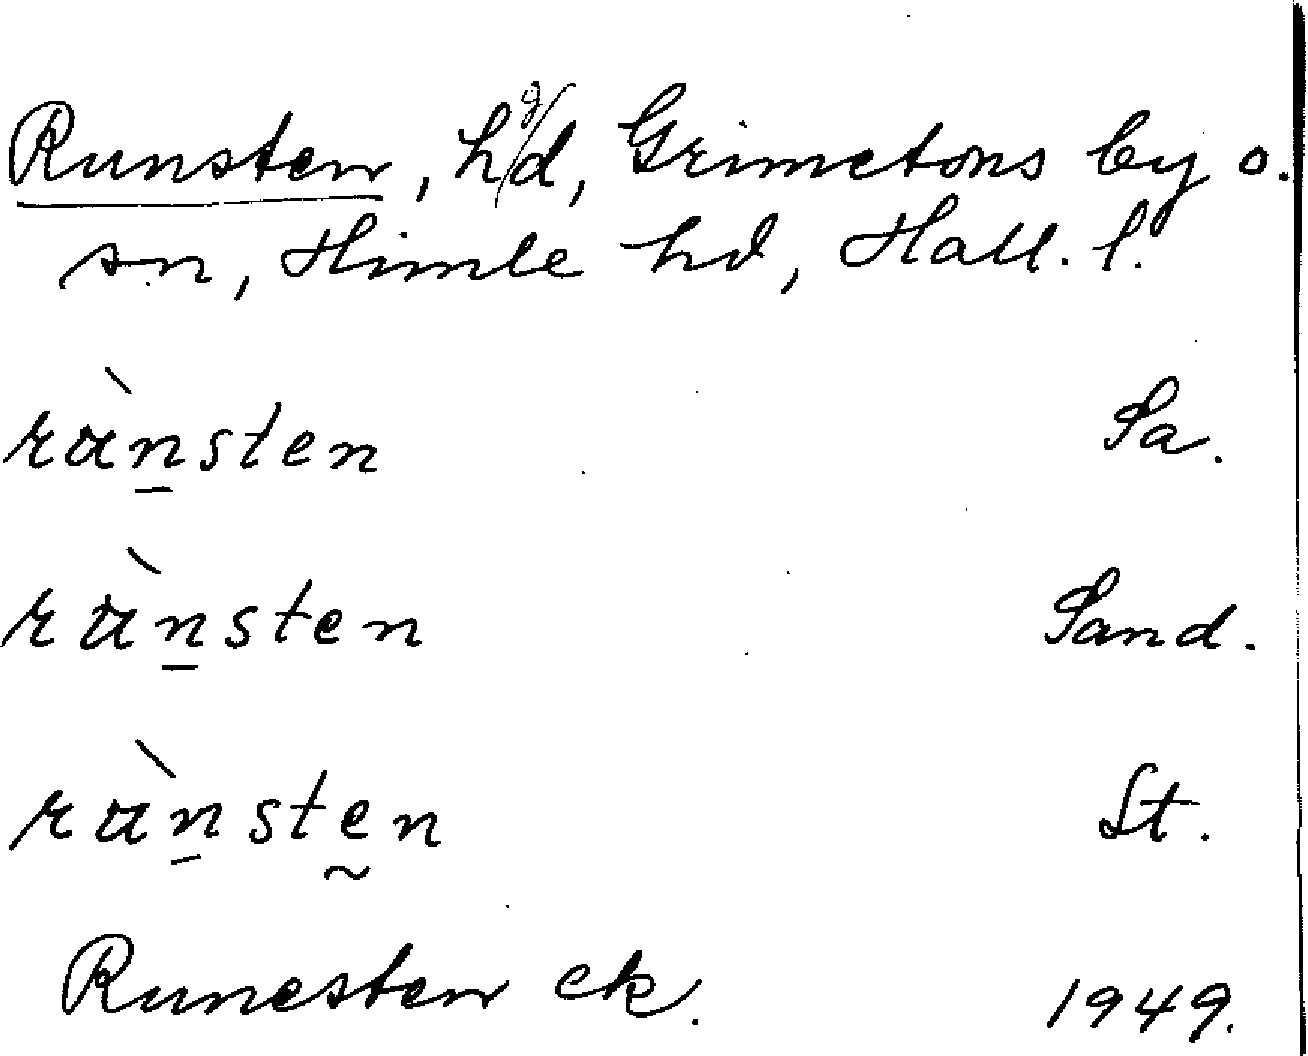 Runsten, hgd, Grimetons by o.
sn, Himle hd, Hall. l.
rʉ̀n̲sten Sa.
rʉ̀n̲sten Sand.
rʉ̀n̲stḛn St.
Runesten ek. 1949.